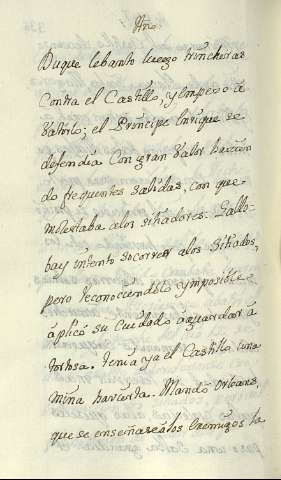 Año
Duque lebanto luego trincheras
Contra el Castillo, y empezo á
batirlo; el Principe Enrique se
defendia Con gran Valor hacien
do frequentes salidas, con que
molestaba alos sitiadores. Gallo-
bay intento socorrer alos Sitiados,
pero reconociendolo ymposible
aplicó su Cuidado aguardar á
tortosa. tenia ya el Castillo una
mina havierta. Mandó Orleans,
que se enseñase álos Enemigos la